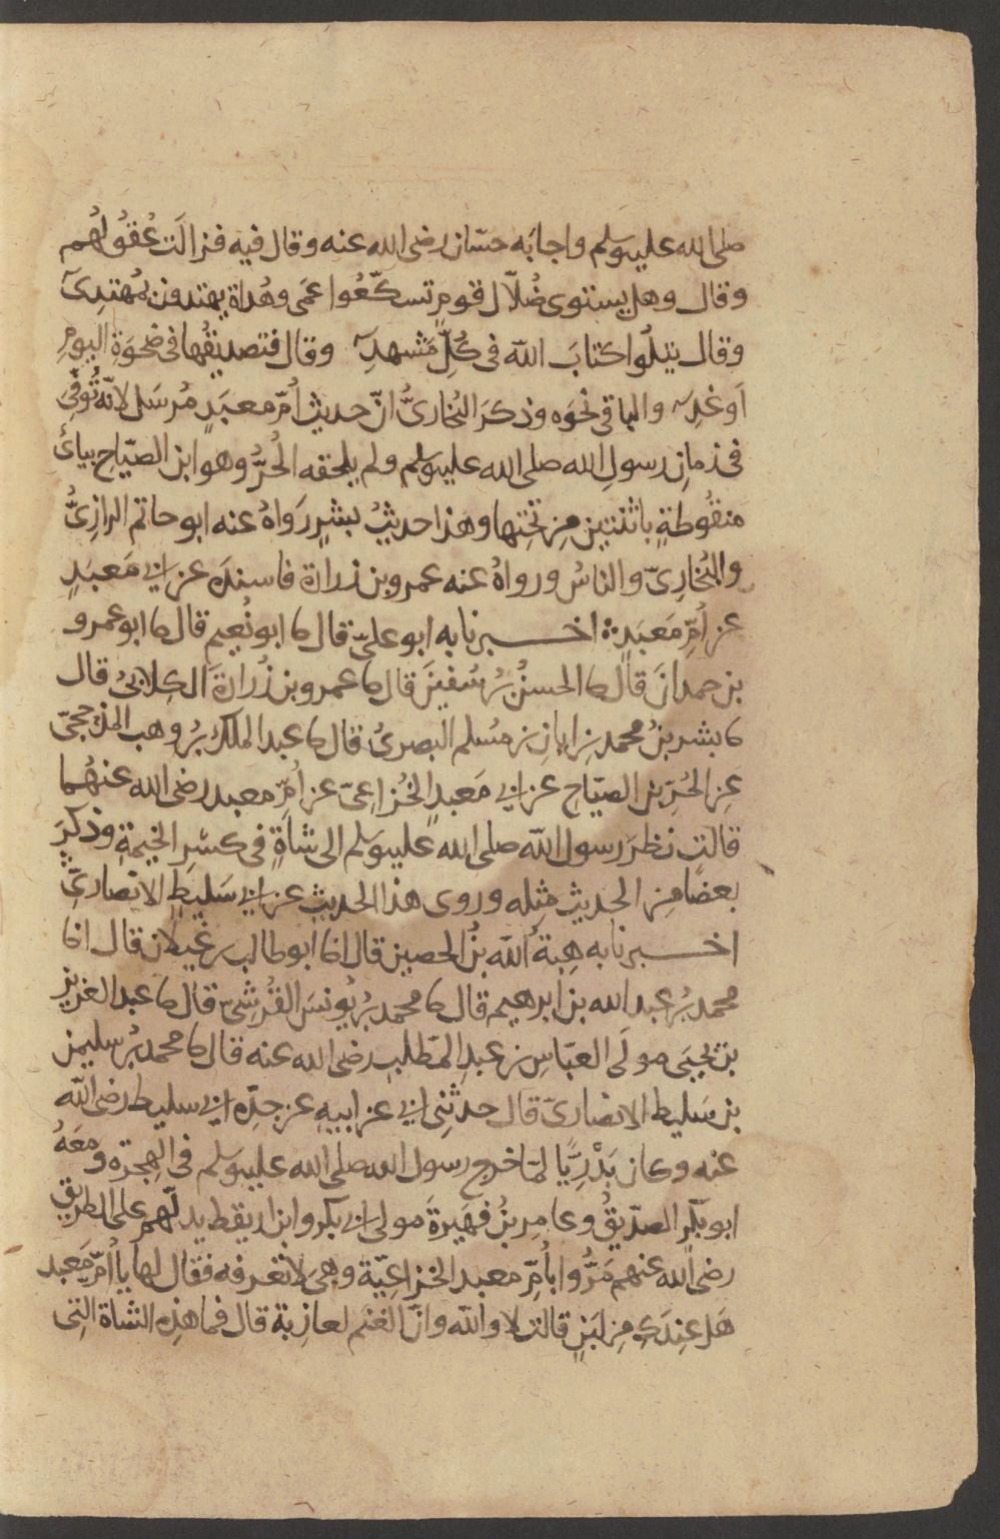 صلى الله عليه وسلم واجابَه حسّان رضى الله عنه وقال فيه فزالَت عُقُولُهُم
وقال وهل يستوى ضُلّال قومٍ تسكّعُوا عمًى وهُداة يهتدون بمُهتدِىَ
وقال يتلُوا كتابَ الله فى كُلّ مَشهدِ وقال فتصديقُها فى ضحْوَةِ اليومِ
اَو غَدِ والباقى نحْوَه وذكرَ البُخارىُّ انّ حديث اُمّ معبَدٍ مُرسَل لانّه تُوفّى
فى زمانِ رسولِ الله صلى الله عليه وسلم ولم يلحقه الحُرُّ وهو ابن الصيّاح بياءٍ
منقُوطةٍ باثنتين مِن تحتِها وهذا حديثُ بشرٍ رَواهُ عنه ابو حاتم الرازِىُّ
والبُخارِىّ والناسُ ورواهُ عنه عمرو بن زرارة فاسندَه عن ابى مَعبَدٍ
عن اُمِّ مَعبَدٍ اخبرنا به ابو علىّ قال نا ابو نُعيم قال نا ابو عمرو
بن حمدانَ قال نا الحسنُ بنُ سُفينَ قال نا عمرو بن زُرارةَ الكِلابىُّ قال
نا بشر بنُ محمد بن ابان بن مُسلم البصرىُ قال نا عبد الملك بنُ وهب المذحجىّ
عن الحُرِّ بن الصيّاح عن ابى مَعبدٍ الخُزاعىّ عن اُمِّ معبد رضى الله عنهُما
قالت نظرَ رسول الله صلى الله عليه وسلم الى شاةٍ فى كسْرِ الخيمةِ وذكرَ
بعضًا مِن الحديث مِثله وروى هذا الحديث عن ابى سَليطٍ الانصارىّ
اخبرنا به هِبةُ الله بنُ الحصين قال انا ابو طالب بن غيلان قال انا
محمد بنُ عبد الله بن ابرهيم قال نا محمد بنُ يُونسَ القُرشىّ قال نا عبد العزيز
بن يحيَى مولَى العبّاسِ بن عبدِ المطّلبِ رضى الله عنه قال نا محمد بنُ سليمن
بن سَليط الانصارىّ قال حدثنِى ابى عن ابيهِ عن جدّه ابى سليط رضى الله
عنه وكان بَدْرِيًّا لمّا خرج رسول الله صلى الله عليه وسلم فى الهجرة ومعَهُ
ابو بكر الصدّيقُ وعامِر بنُ فهَيرةَ مولى ابى بكر وابن اريقط يدلّهم على الطريق
رضى الله عنهم مَرُّوا باُمِّ معبد الخزاعِيّة وهىَ لا تعرفه فقال لها يا اُمَّ مَعبد
هَل عِندَكِ مِن لبَنٍ قالت لا والله وانّ الغنَم لعازبة قال فما هذِه الشاة التِى